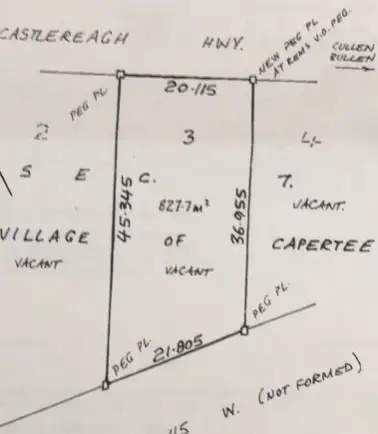 CASTLEREAGH HWY.
NEW PEG PL
AT REMS V.O. PEG.
CULLEN
BULLEN
20·115
PEG PL.
2 3 4
S E C. 7.
827·7m²
VACANT.
45·345
36·955
VILLAGE OF CAPERTEE
VACANT
VACANT
PEG PL.
21·805
PEG PL.
W. (NOT FORMED)
115